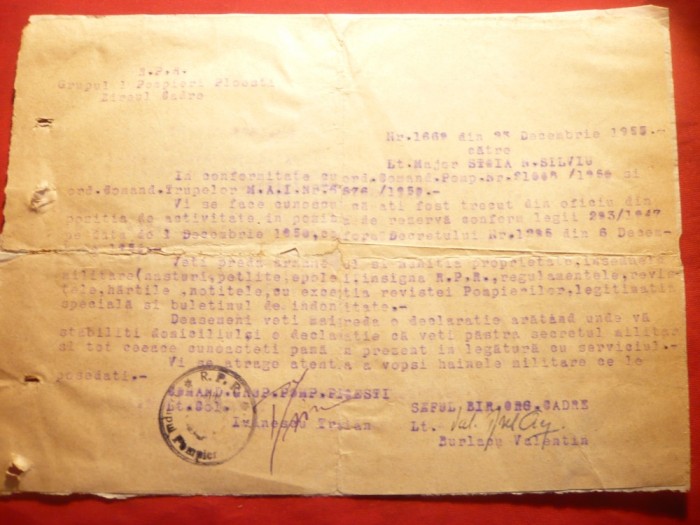 R.P.R.
Grupul I Pompieri Ploesti
Biroul Cadre
Nr.1662 din 23 Decembrie 1950.-
către
Lt.Major STOIA N.SILVIU
In conformitate cu ord.Comand.Pomp.Nr. /1950 si
ord.Comand.Trupelor M.A.I.Nr. /1950.-
Vi se face cunoscut că ati fost trecut din oficiu din
pozitia de activitate in pozitia de rezervă conform legii 293/1947
pe data de 1 Decembrie 1950, conform Decretului Nr.1296 din 6 Decem-
Veti preda si munitia proprietate, insemnele
militare(nasturi,petlite,epoleti,insigna R.P.R.,regulamentele,revis-
tele,hărtile ,notitele,cu exceptia revistei Pompierilor,legitimatia
specială si buletinul de identitate.-
Deasemeni veti mai preda o declaratie arătănd unde vă
stabiliti domiciliul si o declaratie că veti păstra secretul militar
să tot ceeace cunoasteti pană in prezent in legătură cu serviciul.-
Vi se atrage atentia a vopsi hainele militare ce le
posedati.-
COMAND.GRUP.POMP.PLOESTI
Lt.Col.
Traian
SEFUL BIR.ORG.CADRE
Lt.
Burlacu Valentin
R.P.R.
Grupul Pompieri